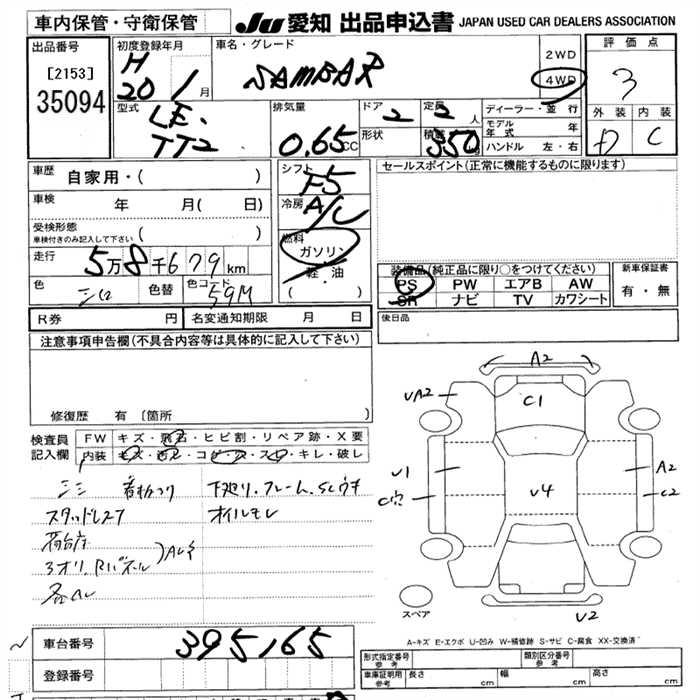 車内保管・守衛保管
JU 愛知 出品申込書 JAPAN USED CAR DEALERS ASSOCIATION
出品番号
[2153]
35094
初度登録年月
H
20 1 月
車名・グレード
SAMBAR
2WD
4WD
評価点
3
外装 内装
D C
型式
LE-
TT2
排気量
0.65 CC
ドア
2
形状
定員
2 人
積載
350
ディーラー・並行
モデル年式 年
ハンドル 左・右
車歴 自家用・( )
車検 年 月( 日)
受検形態
車検付きのみ記入して下さい ( )
走行 5万8千679km
色 シロ 色替 色コード 59M
シフト
F5
冷房
A/C
燃料
ガソリン
軽・油
( )
セールスポイント(正常に機能するものに限ります)
装備品(純正品に限り○をつけてください)
PS PW エアB AW
SR ナビ TV カワシート
新車保証書
有・無
R券 円 名変通知期限 月 日
後日品
注意事項申告欄(不具合内容等は具体的に記入して下さい)
修復歴 有 [箇所 ]
検査員記入欄
FW キズ・飛石・ヒビ割・リペア跡・X要
内装 キズ・汚レ・コゲ・穴・スレ・キレ・破レ
下廻り.フレーム.SCウキ
スタッドレス7
オイルモレ
荷台サ
3オリ.Rパネル
各AU
A2
UA2
C1
U1
C穴
U4
A2
C2
U2
スペア
A-キズ E-エクボ U-凹み W-補修跡 S-サビ C-腐食 XX-交換済
車台番号 395165
登録番号
形式指定番号
参考
類別区分番号
参考
車庫証明用
参考
長さ cm
幅 cm
高さ cm